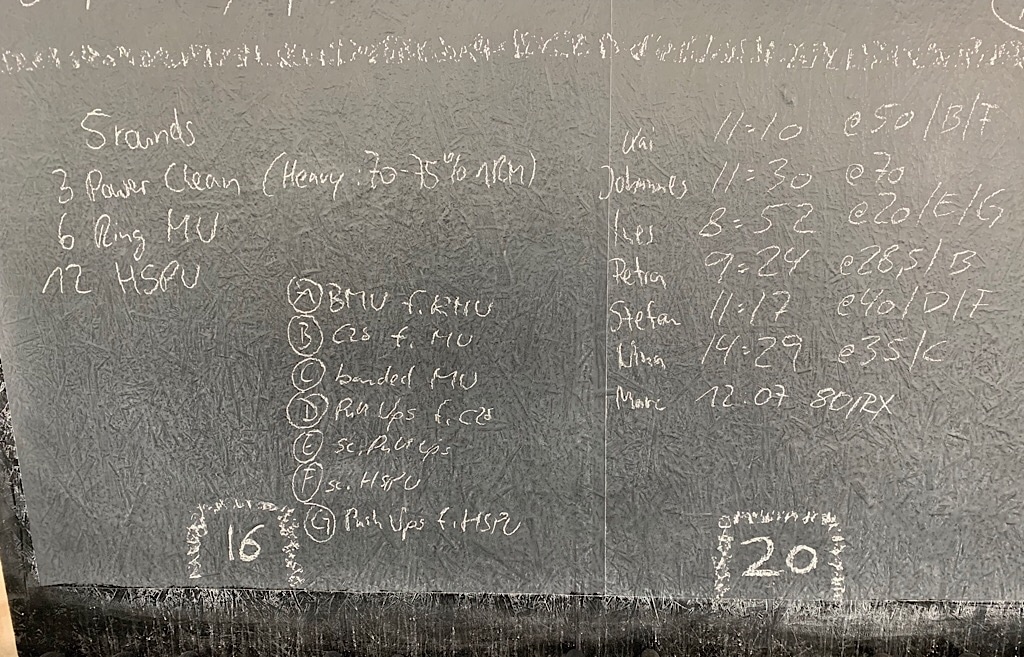 5 rounds
3 Power Clean (Heavy: 70-75% 1RM)
6 Ring MU
12 HSPU
Ⓐ BMU f. RMU
Ⓑ C2B f. MU
Ⓒ banded MU
Ⓓ Pull Ups f. C2B
Ⓔ sc. Pull Ups
Ⓕ sc. HSPU
Ⓖ Push Ups f. HSPU
16
Kai 11:10 @50/B/F
Johannes 11:30 @70
Ines 8:52 @20/E/G
Petra 9:24 @28,5/B
Stefan 11:17 @40/D/F
Nina 14:29 @35/C
Marc 12.07 80/RX
20